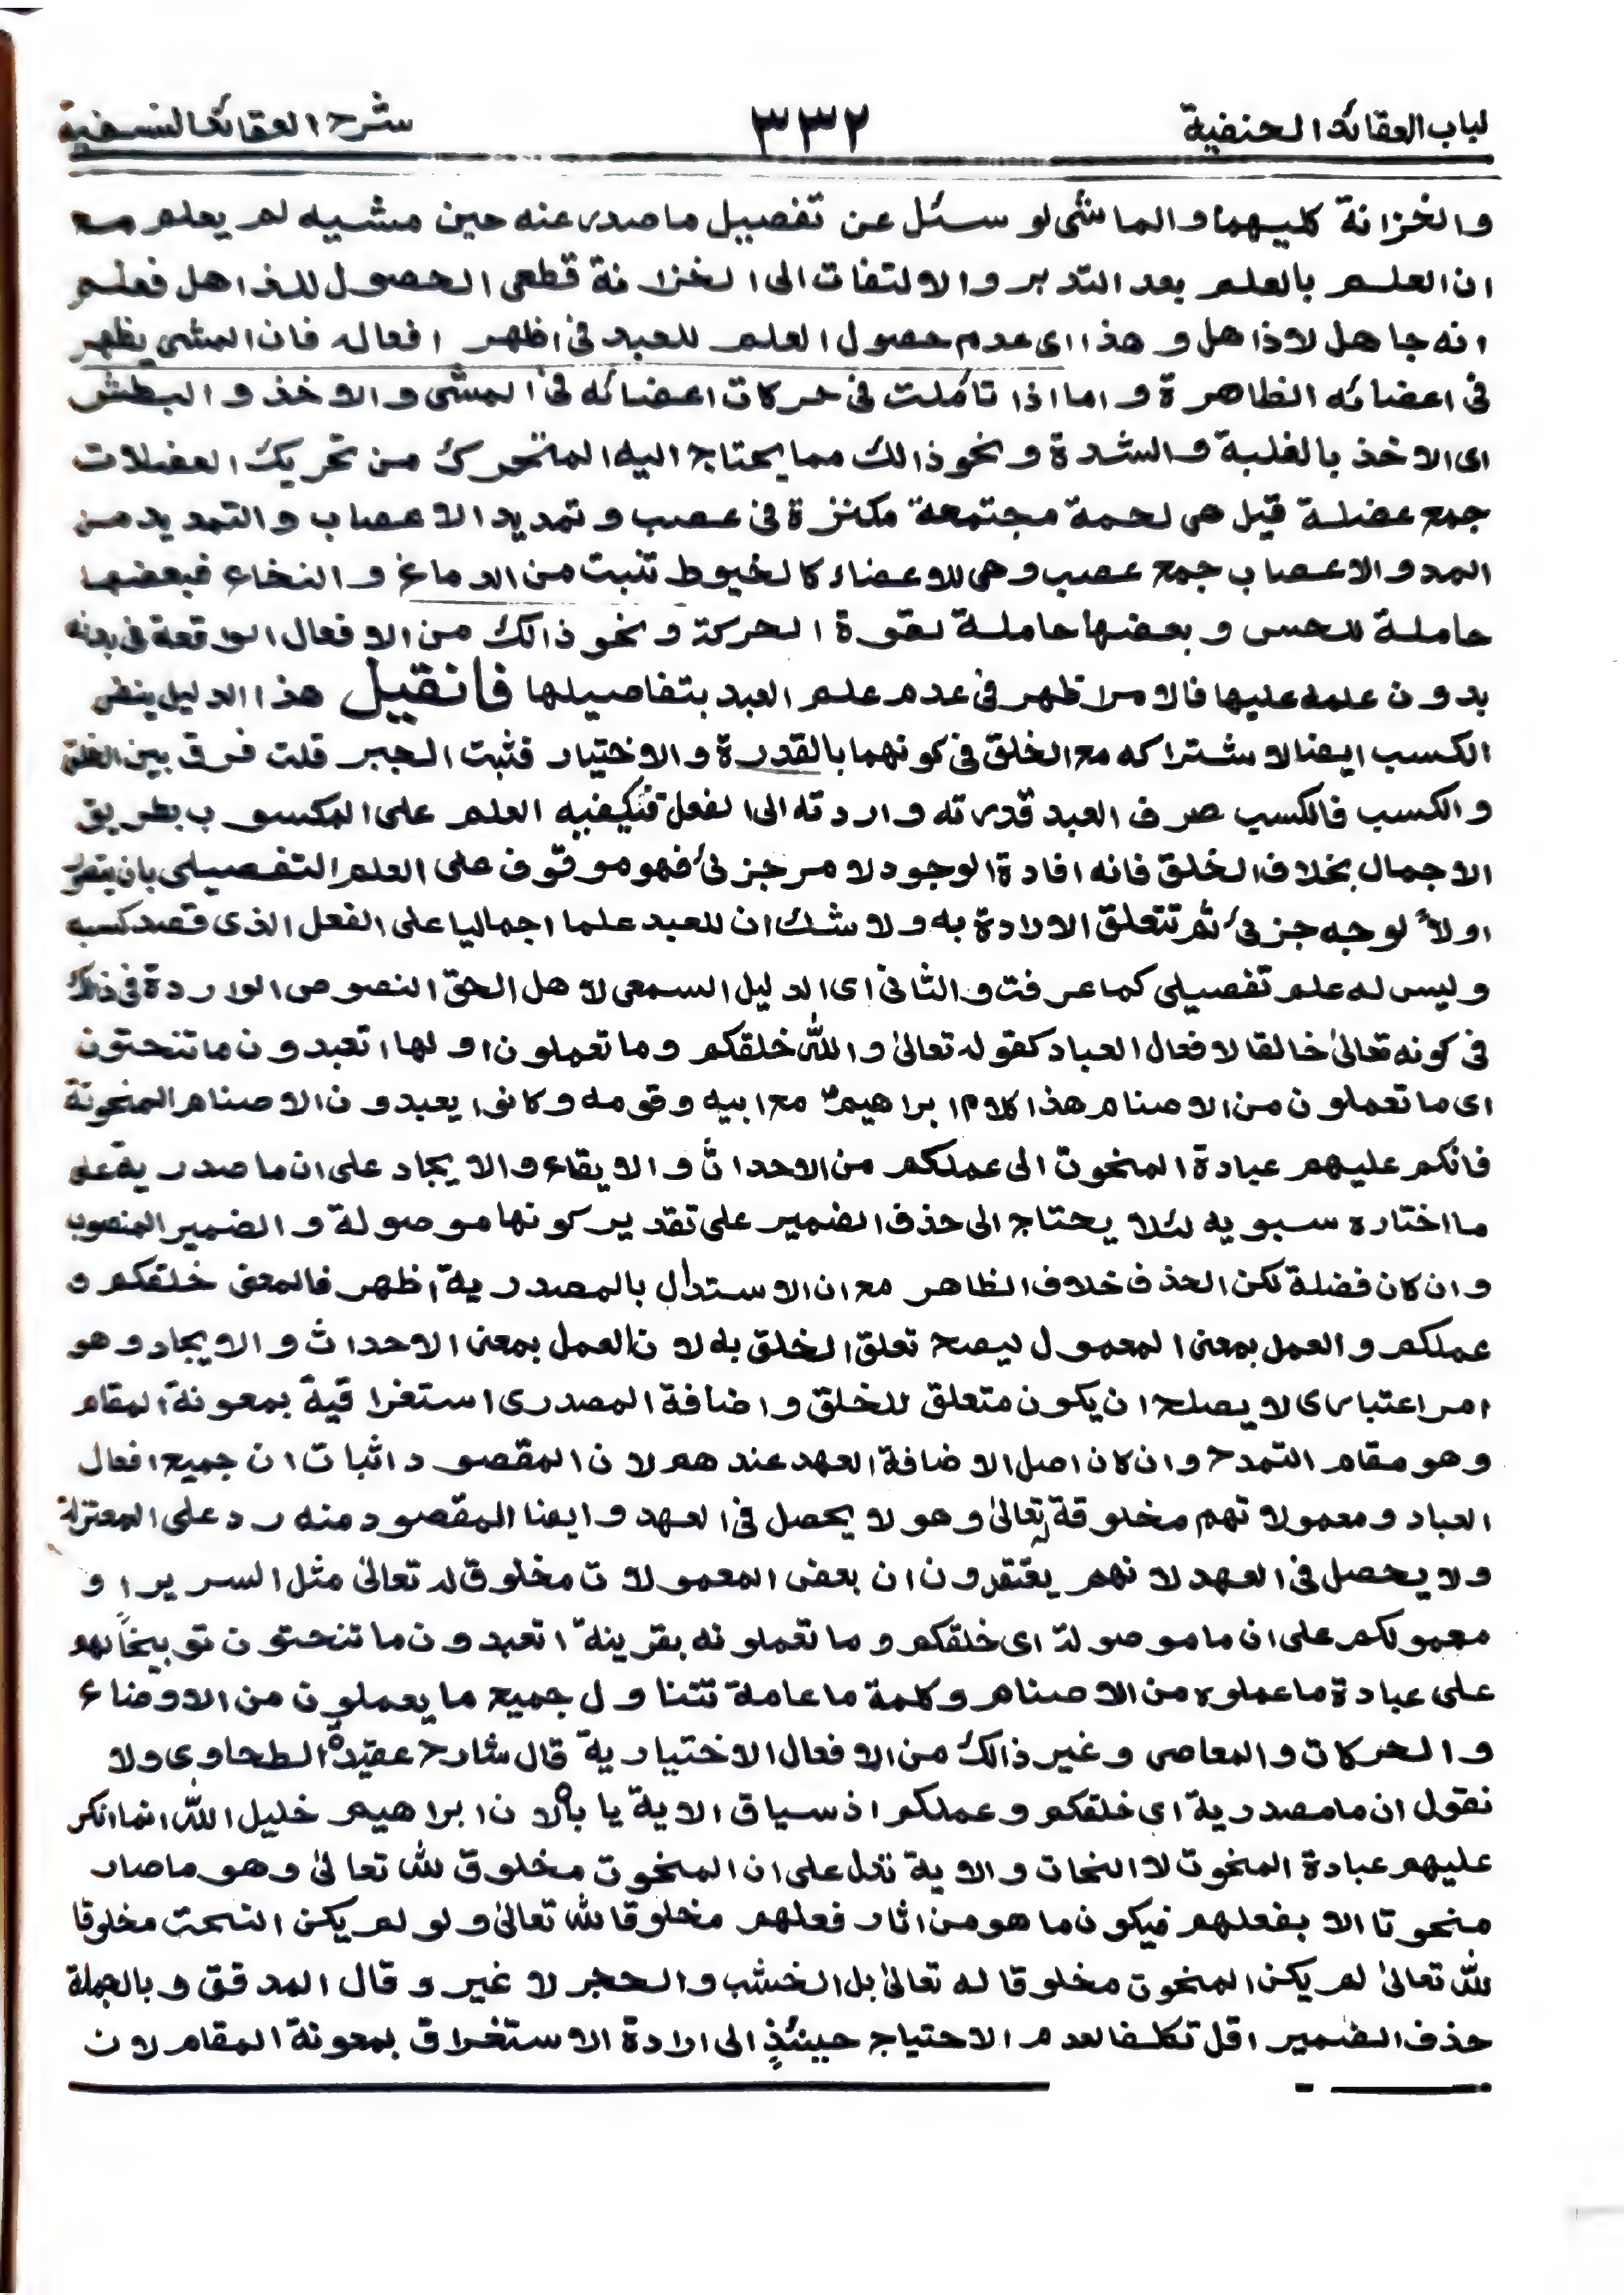 لباب العقائد الحنفية ٣٣٢ شرح العقائد النسفية
والخزانة كليهما والماشى لو سئل عن تفصيل ما صدر عنه حين مشيه لم يعلم مع
ان العلم بالعلم بعد التدبر والالتفات الى الخزانة قطعى الحصول للذاهل فعلم
انه جاهل لا ذاهل وهذا اى عدم حصول العلم للعبد فى اظهر افعاله فان المشى يظهر
فى اعضائه الظاهرة واما اذا تأملت فى حركات اعضائه فى المشى والاخذ والبطش
اى الاخذ بالغلبة والشدة ونحو ذالك مما يحتاج اليه المتحرك من تحريك العضلات
جمع عضلة قيل هى لحمة مجتمعة مكنزة فى عصب وتمديد الاعصاب والتمديد من
المد والاعصاب جمع عصب وهى للاعضاء كالخيوط تنبت من الدماغ والنخاع فبعضها
حاملة للحس وبعضها حاملة لقوة الحركة ونحو ذالك من الافعال الواقعة فى بدنه
بدون علمه عليها فالامر اظهر فى عدم علم العبد بتفاصيلها فان قيل هذا الدليل ينفى
الكسب ايضا لاشتراكه مع الخلق فى كونهما بالقدرة والاختيار فثبت الجبر قلت فرق بين الخلق
والكسب فالكسب صرف العبد قدرته واردته الى الفعل فيكفيه العلم على المكسوب بطريق
الاجمال بخلاف الخلق فانه افادة الوجود لامر جزئى فهو موقوف على العلم التفصيلى بان يتصور
اولاً لوجه جزئى ثم تتعلق الارادة به ولا شك ان للعبد علما اجماليا على الفعل الذى قصد كسبه
وليس له علم تفصيلى كما عرفت والثانى اى الدليل السمعى لاهل الحق النصوص الواردة فى ذلك
فى كونه تعالىٰ خالقا لافعال العباد كقوله تعالىٰ والله خلقكم وما تعملون اولها اتعبدون ما تنحتون
اى ما تعملون من الاصنام هذا كلام ابراهيم مع ابيه وقومه وكانوا يعبدون الاصنام المنحوتة
فانكم عليهم عبادة المنحوت الى عملكم من الاحداث والايقاع والايجاد على ان ما مصدرية على
ما اختاره سبويه لئلا يحتاج الى حذف الضمير على تقدير كونها موصولة والضمير المنصوب
وان كان فضلة لكن الحذف خلاف الظاهر مع ان الاستدلال بالمصدرية اظهر فالمعنى خلقكم و
عملكم والعمل بمعنى المعمول ليصح تعلق الخلق به لان العمل بمعنى الاحداث والايجاد وهو
امر اعتبارى لا يصلح ان يكون متعلق للخلق واضافة المصدرى استغراقية بمعونة المقام
وهو مقام التمدح وان كان اصل الاضافة العهد عندهم لان المقصود اثبات ان جميع افعال
العباد ومعمولاتهم مخلوقة له تعالىٰ وهو لا يحصل فى العهد وايضا المقصود منه رد على المعتزلة
ولا يحصل فى العهد لانهم يعتقدون ان بعض المعمولات مخلوق له تعالىٰ مثل السرير او
معمولكم على ان ما موصولة اى خلقكم وما تعملونه بقرينة اتعبدون ما تنحتون توبيخاً لهم
على عبادة ما عملوه من الاصنام وكلمة ما عامة تتناول جميع ما يعملون من الاوضاع
والحركات والمعاصى وغير ذالك من الافعال الاختيارية قال شارح عقيدة الطحاوى ولا
نقول ان ما مصدرية اى خلقكم وعملكم اذ سياق الاية ياباه لان ابراهيم خليل الله انما انكر
عليهم عبادة المنحوت لا النحات والاية تدل على ان المنحوت مخلوق لله تعالىٰ وهو ما صار
منحوتا الا بفعلهم فيكون ما هو من اثار فعلهم مخلوقا لله تعالىٰ ولو لم يكن النحت مخلوقا
لله تعالىٰ لم يكن المنحوت مخلوقا له تعالىٰ بل الخشب والحجر لا غير وقال المدقق وبالجملة
حذف الضمير اقل تكلفا لعدم الاحتياج حينئذٍ الى ارادة الاستغراق بمعونة المقام لان